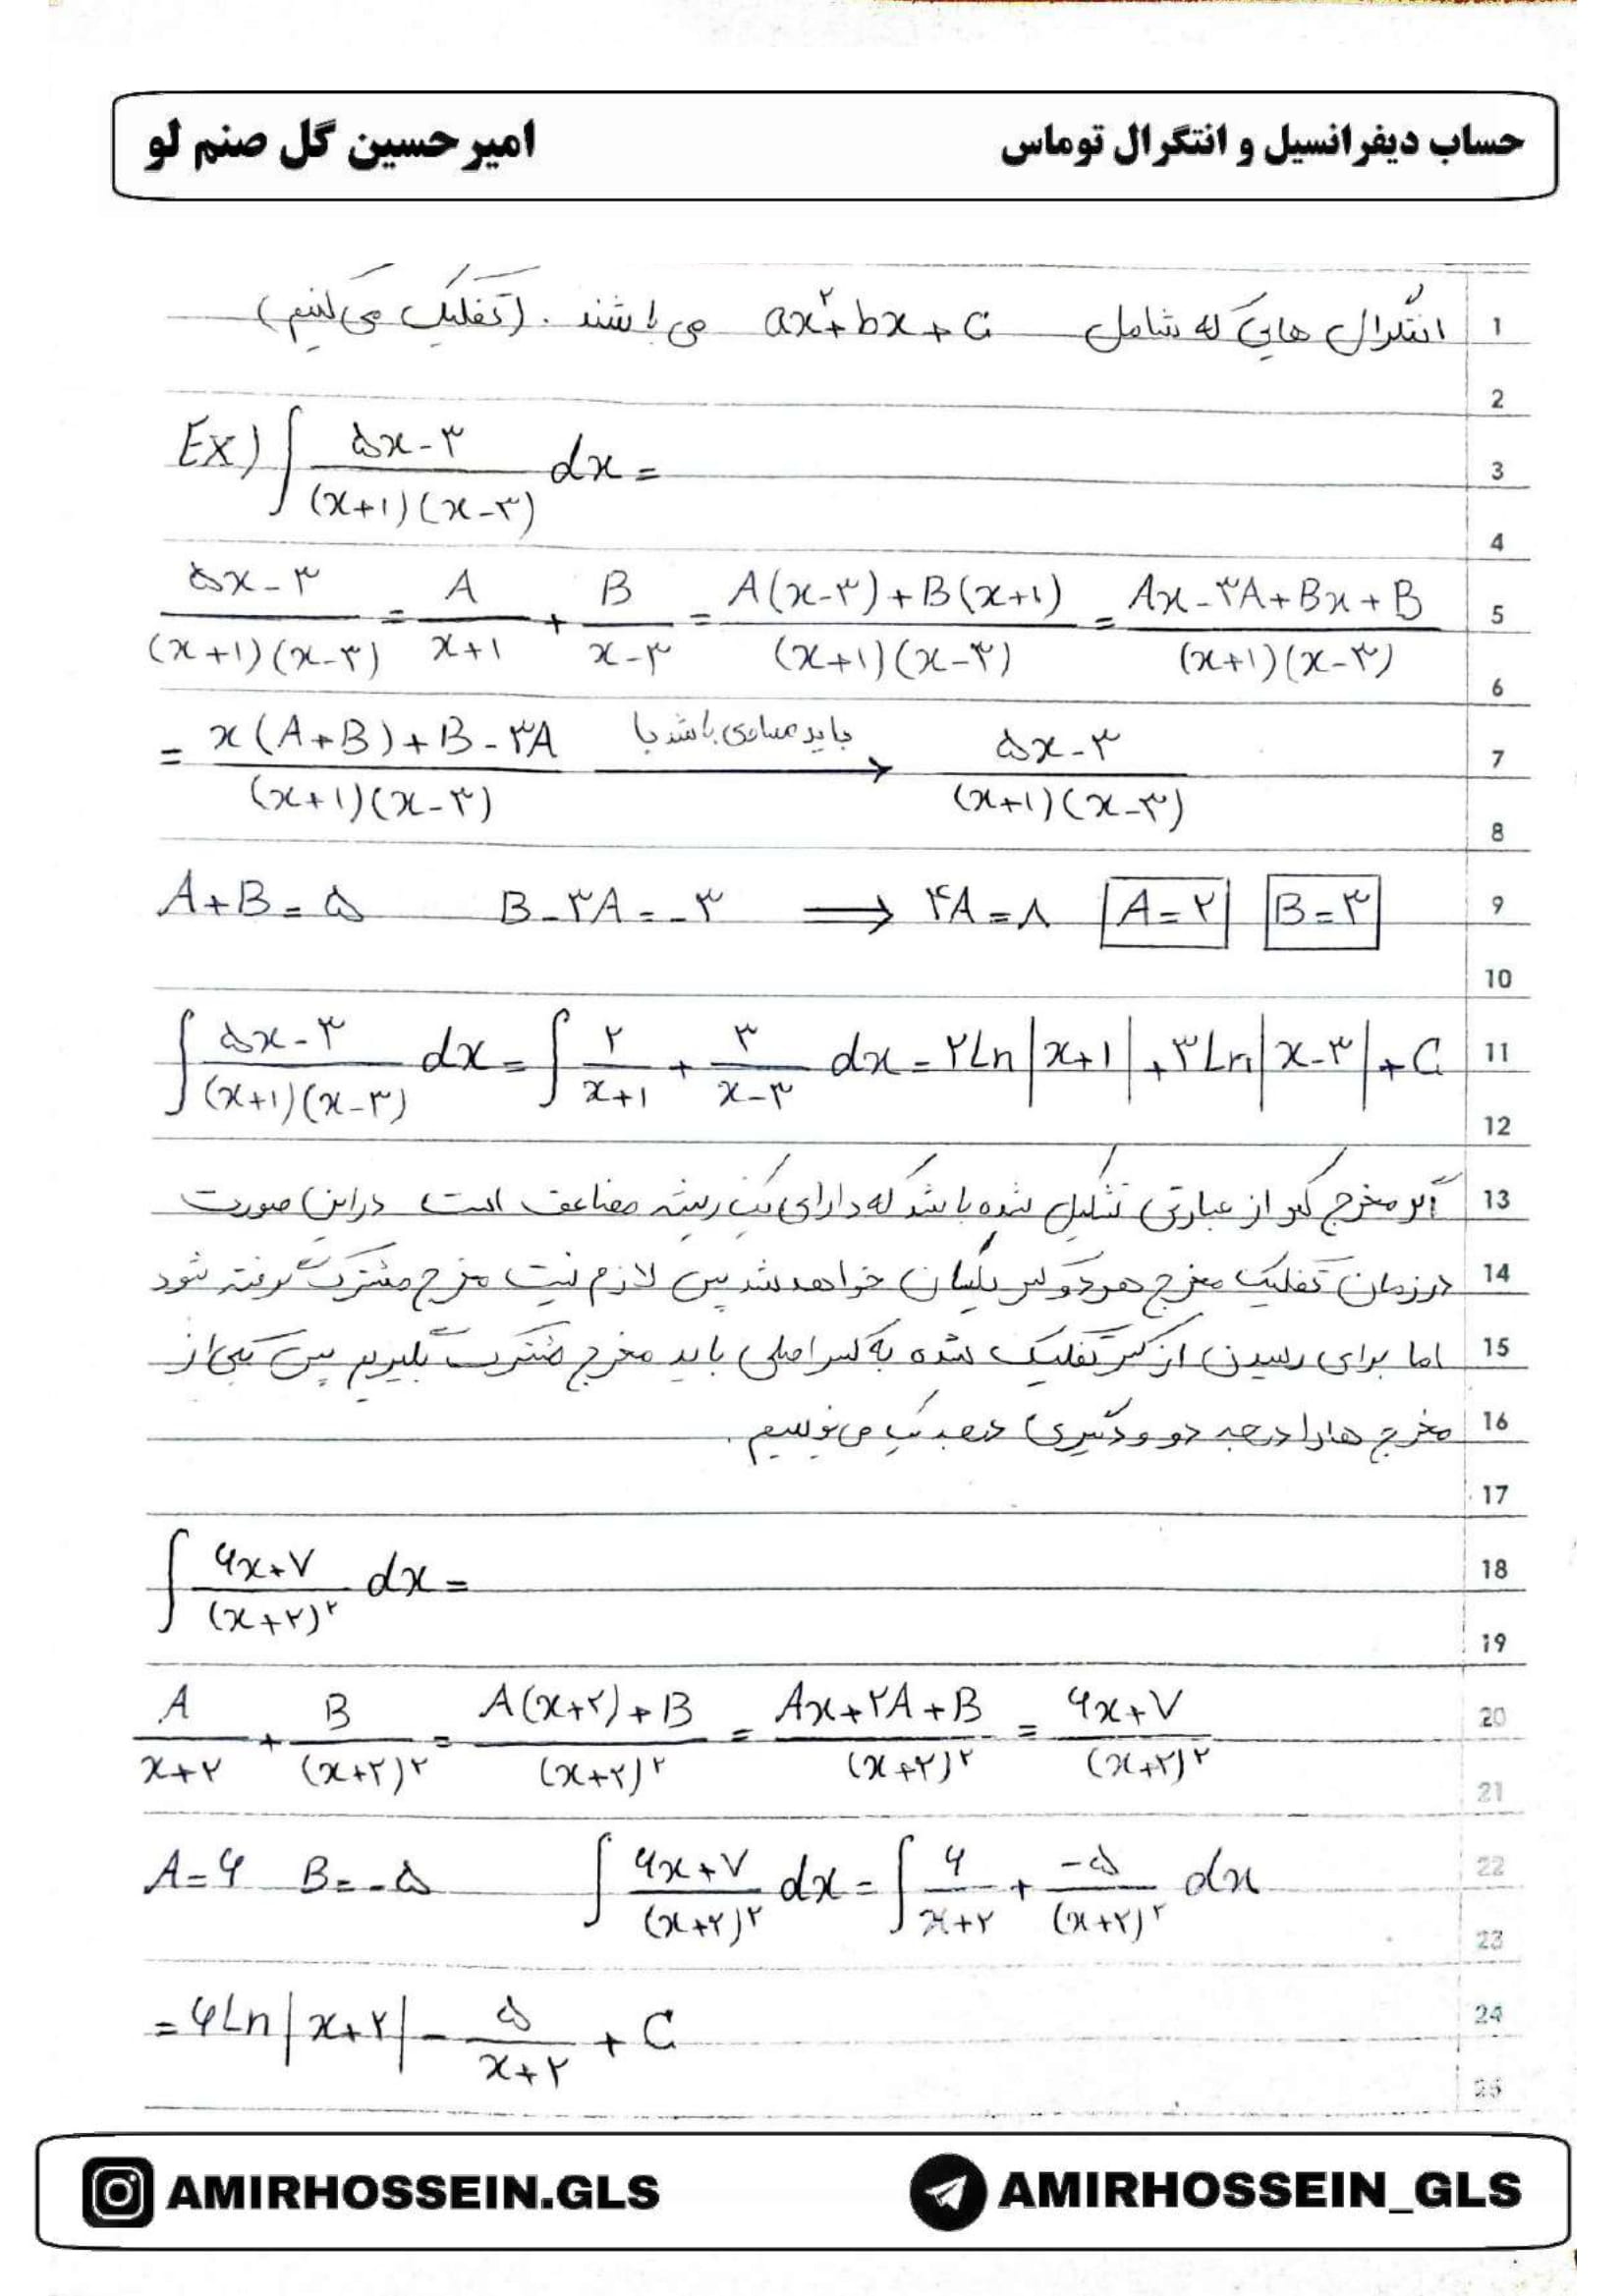 حساب دیفرانسیل و انتگرال توماس امیرحسین گل صنم لو
1 انتگرال هایی که شامل ax²+bx+c می باشند. (تفکیک می کنیم)
2
3 Ex) ∫ (۵x-۳)/((x+1)(x-۳)) dx =
4
5 (۵x-۳)/((x+1)(x-۳)) = A/(x+1) + B/(x-۳) = (A(x-۳)+B(x+1))/((x+1)(x-۳)) = (Ax-۳A+Bx+B)/((x+1)(x-۳))
6
7 = (x(A+B)+B-۳A)/((x+1)(x-۳)) باید مساوی باشد با → (۵x-۳)/((x+1)(x-۳))
8
9 A+B=۵ B-۳A=-۳ ⟹ ۴A=۸ A=۲ B=۳
10
11 ∫ (۵x-۳)/((x+1)(x-۳)) dx = ∫ ۲/(x+1) + ۳/(x-۳) dx = ۲Ln|x+1|+۳Ln|x-۳|+C
12
13 اگر مخرج کسر از عبارتی تشکیل شده باشد که دارای یک ریشه مضاعف است در این صورت
14 در زمان تفکیک مخرج هر دو کسر یکسان خواهد شد پس لازم نیست مخرج مشترک گرفته شود
15 اما برای رسیدن از کسر تفکیک شده به کسر اصلی باید مخرج مشترک بگیریم پس یکی از
16 مخرج ها را درجه دو و دیگری درجه یک می نویسیم.
17
18 ∫ (۶x+۷)/(x+۲)² dx =
19
20 A/(x+۲) + B/(x+۲)² = (A(x+۲)+B)/(x+۲)² = (Ax+۲A+B)/(x+۲)² = (۶x+۷)/(x+۲)²
21
22 A=۶ B=-۵ ∫ (۶x+۷)/(x+۲)² dx = ∫ ۶/(x+۲) + -۵/(x+۲)² dx
23
24 = ۶Ln|x+۲| - ۵/(x+۲) + C
25
AMIRHOSSEIN.GLS AMIRHOSSEIN_GLS